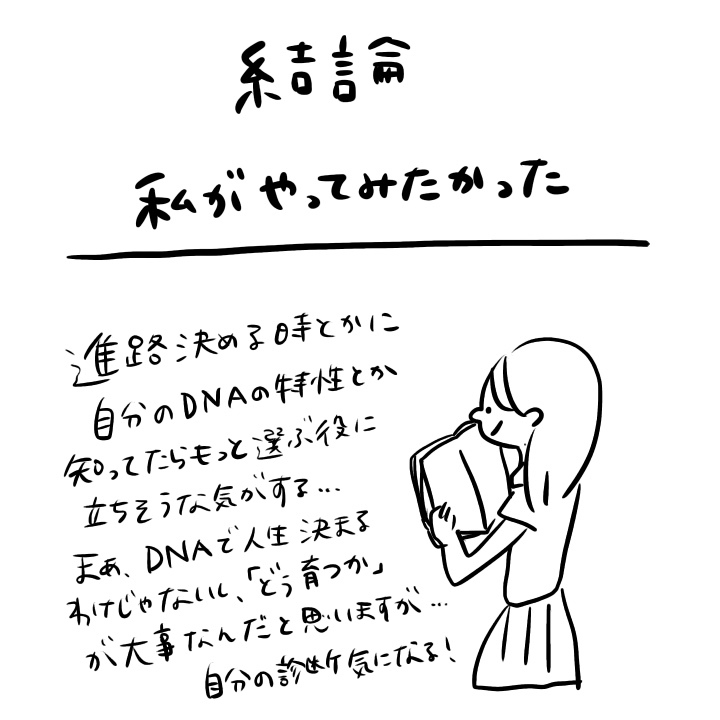 結論
私がやってみたかった
進路決める時とかに
自分のDNAの特性とか
知ってたらもっと選ぶ役に
立ちそうな気がする…
まぁ、DNAで人生決まる
わけじゃないし、「どう育つか」
が大事なんだと思いますが…
自分の診断ケ気になる!